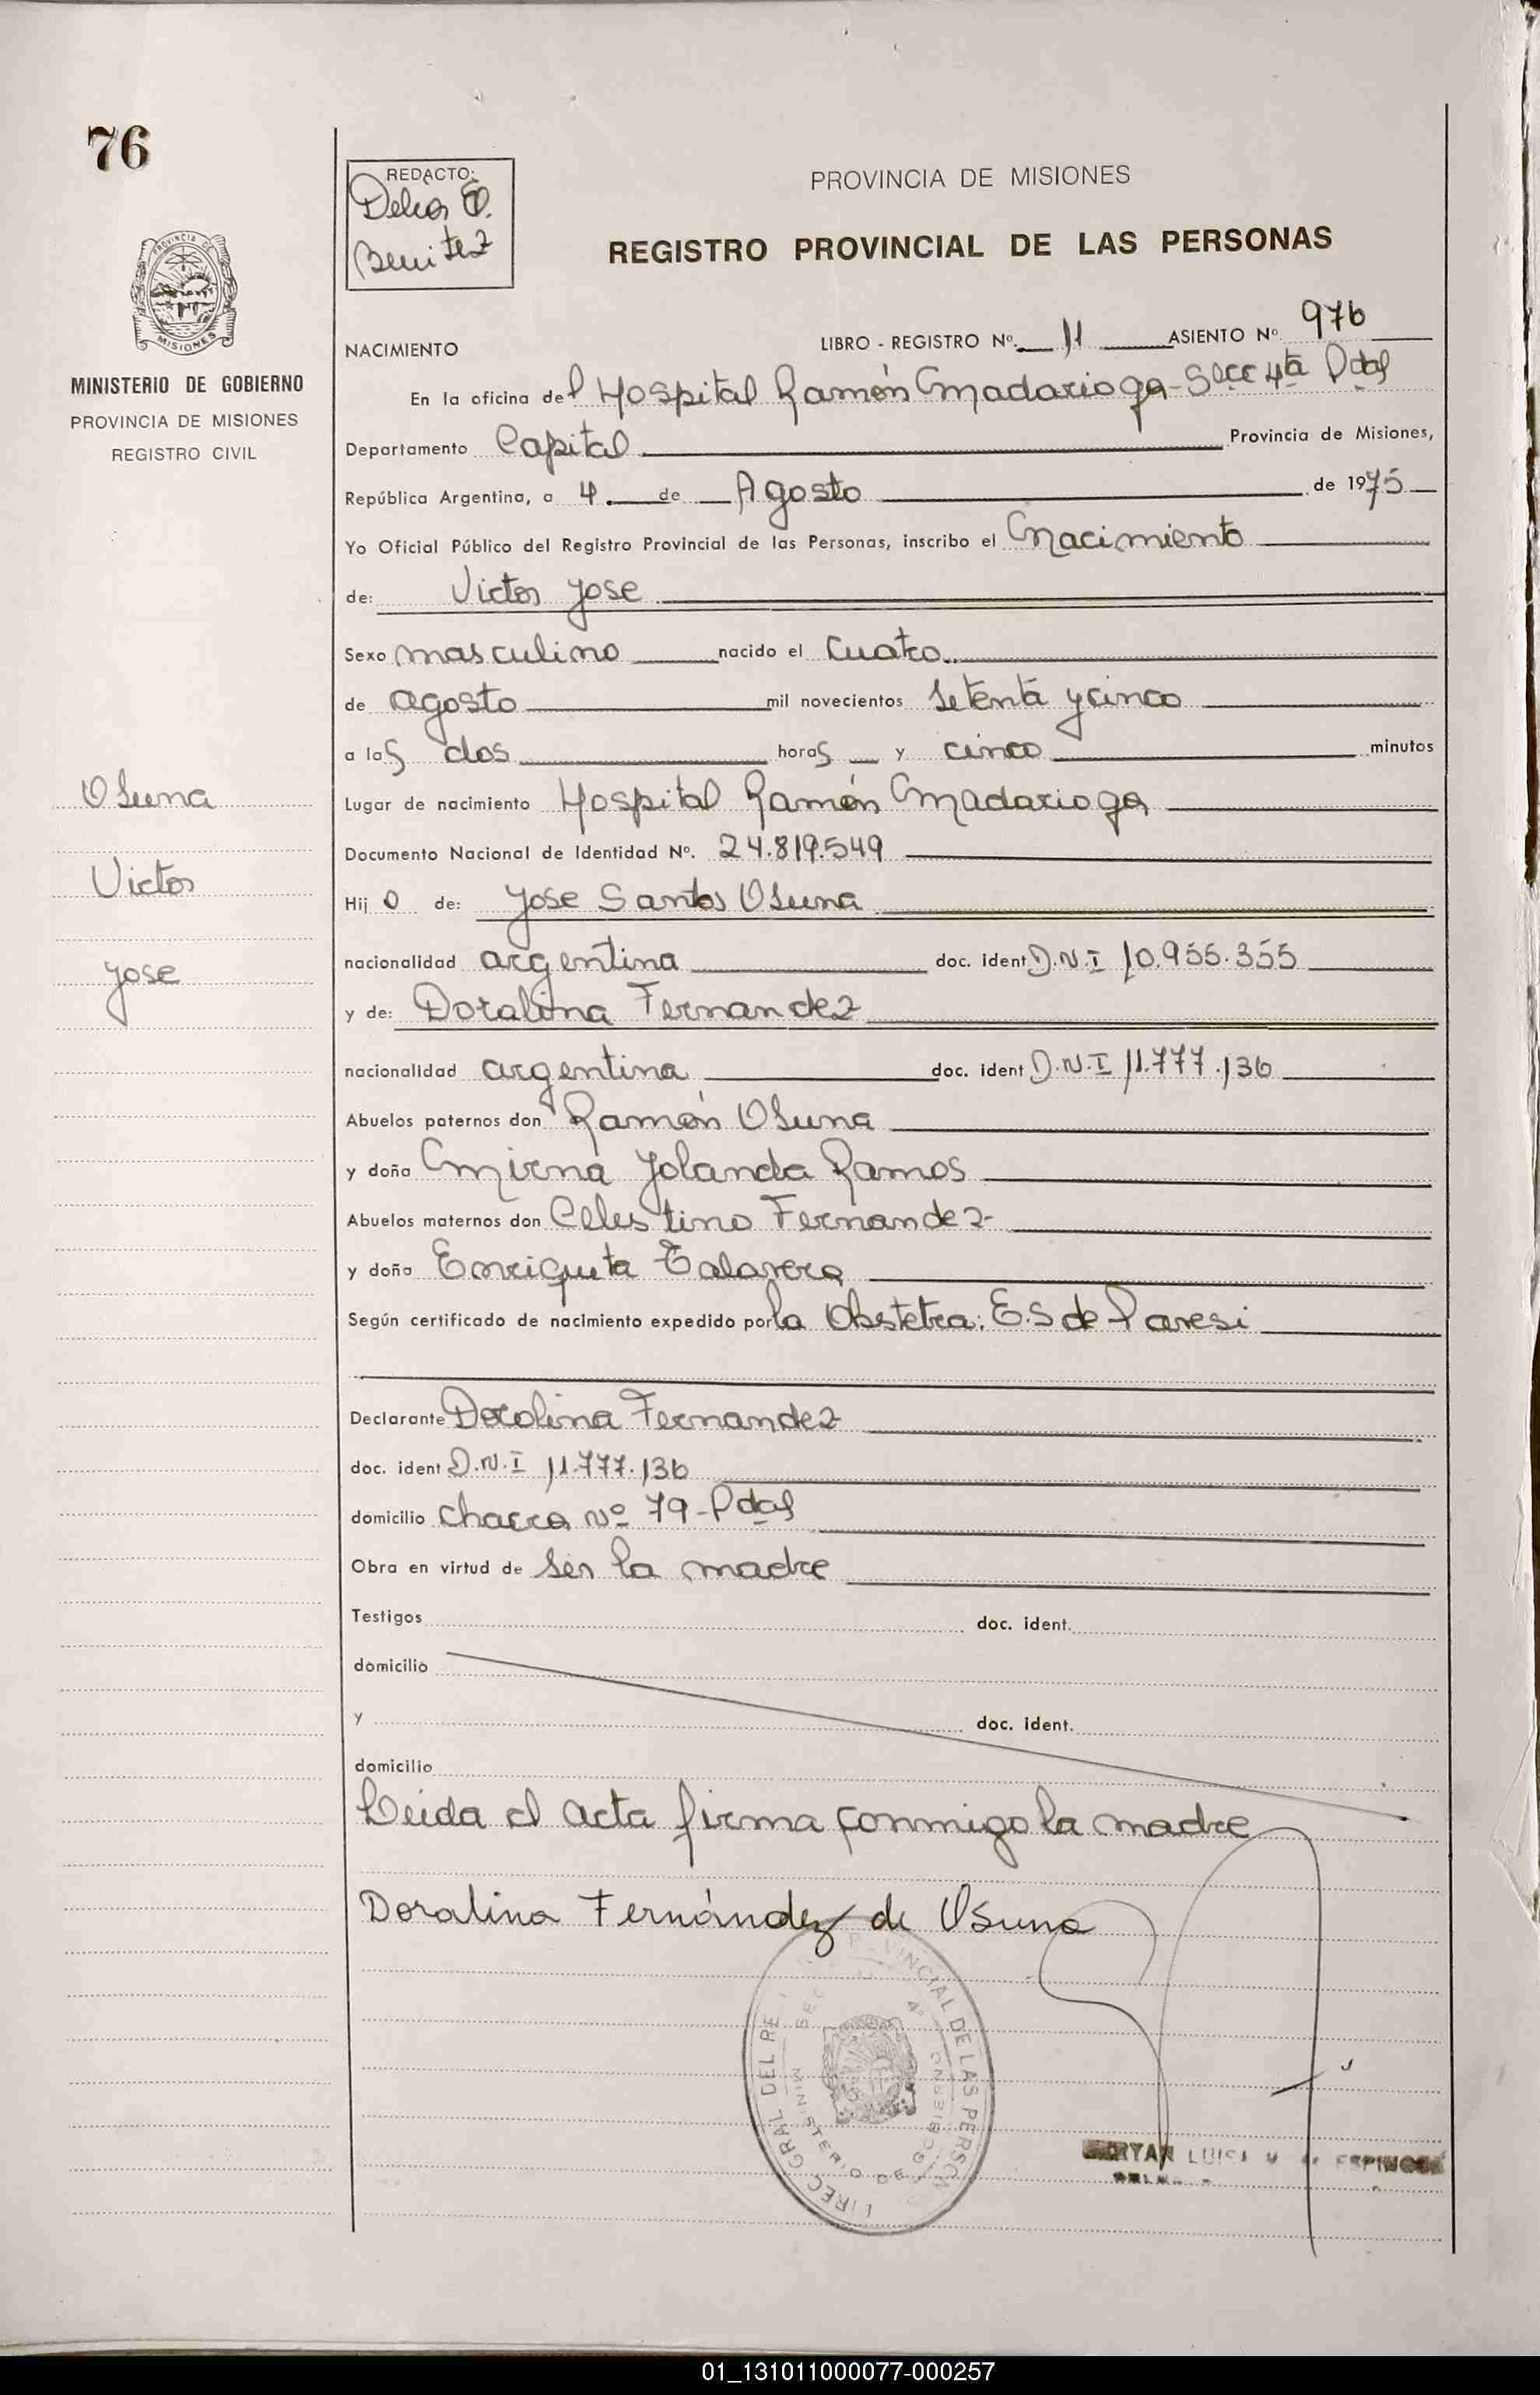 76
REDACTO:
Benitez
PROVINCIA DE MISIONES
REGISTRO PROVINCIAL DE LAS PERSONAS
PROVINCIA DE
MISIONES
MINISTERIO DE GOBIERNO
PROVINCIA DE MISIONES
REGISTRO CIVIL
NACIMIENTO LIBRO - REGISTRO Nº. 11 ASIENTO Nº 976
En la oficina del Hospital Ramón Madariaga - Secc 4ta Pdas
Departamento Capital Provincia de Misiones,
República Argentina, a 4 de Agosto de 1975
Yo Oficial Público del Registro Provincial de las Personas, inscribo el Nacimiento
de: Victor Jose
Sexo masculino nacido el cuatro
de agosto mil novecientos setenta y cinco
a las dos horas y cinco minutos
Lugar de nacimiento Hospital Ramón Madariaga
Documento Nacional de Identidad Nº. 24.819.549
Hijo de: Jose Santos Osuna
nacionalidad argentina doc. ident D.N.I 10.955.355
y de: Doralina Fernandez
nacionalidad argentina doc. ident D.N.I 11.777.136
Abuelos paternos don Ramón Osuna
y doña Mirna Yolanda Ramos
Abuelos maternos don Celestino Fernandez
y doña Enriqueta Talavera
Según certificado de nacimiento expedido por la Obstetra: E.S de Paresi
Declarante Doralina Fernandez
doc. ident D.N.I 11.777.136
domicilio Chacra Nº 79 - Pdas
Obra en virtud de ser la madre
Testigos doc. ident.
domicilio
y doc. ident.
domicilio
Leida el acta firma conmigo la madre
Doralina Fernández de Osuna
Osuna
Victor
Jose
PROVINCIAL DE LAS PERSON
GRAL DEL RE
MINISTERIO DE GOBIERNO
LUISA
ESPINOSA
01_131011000077-000257